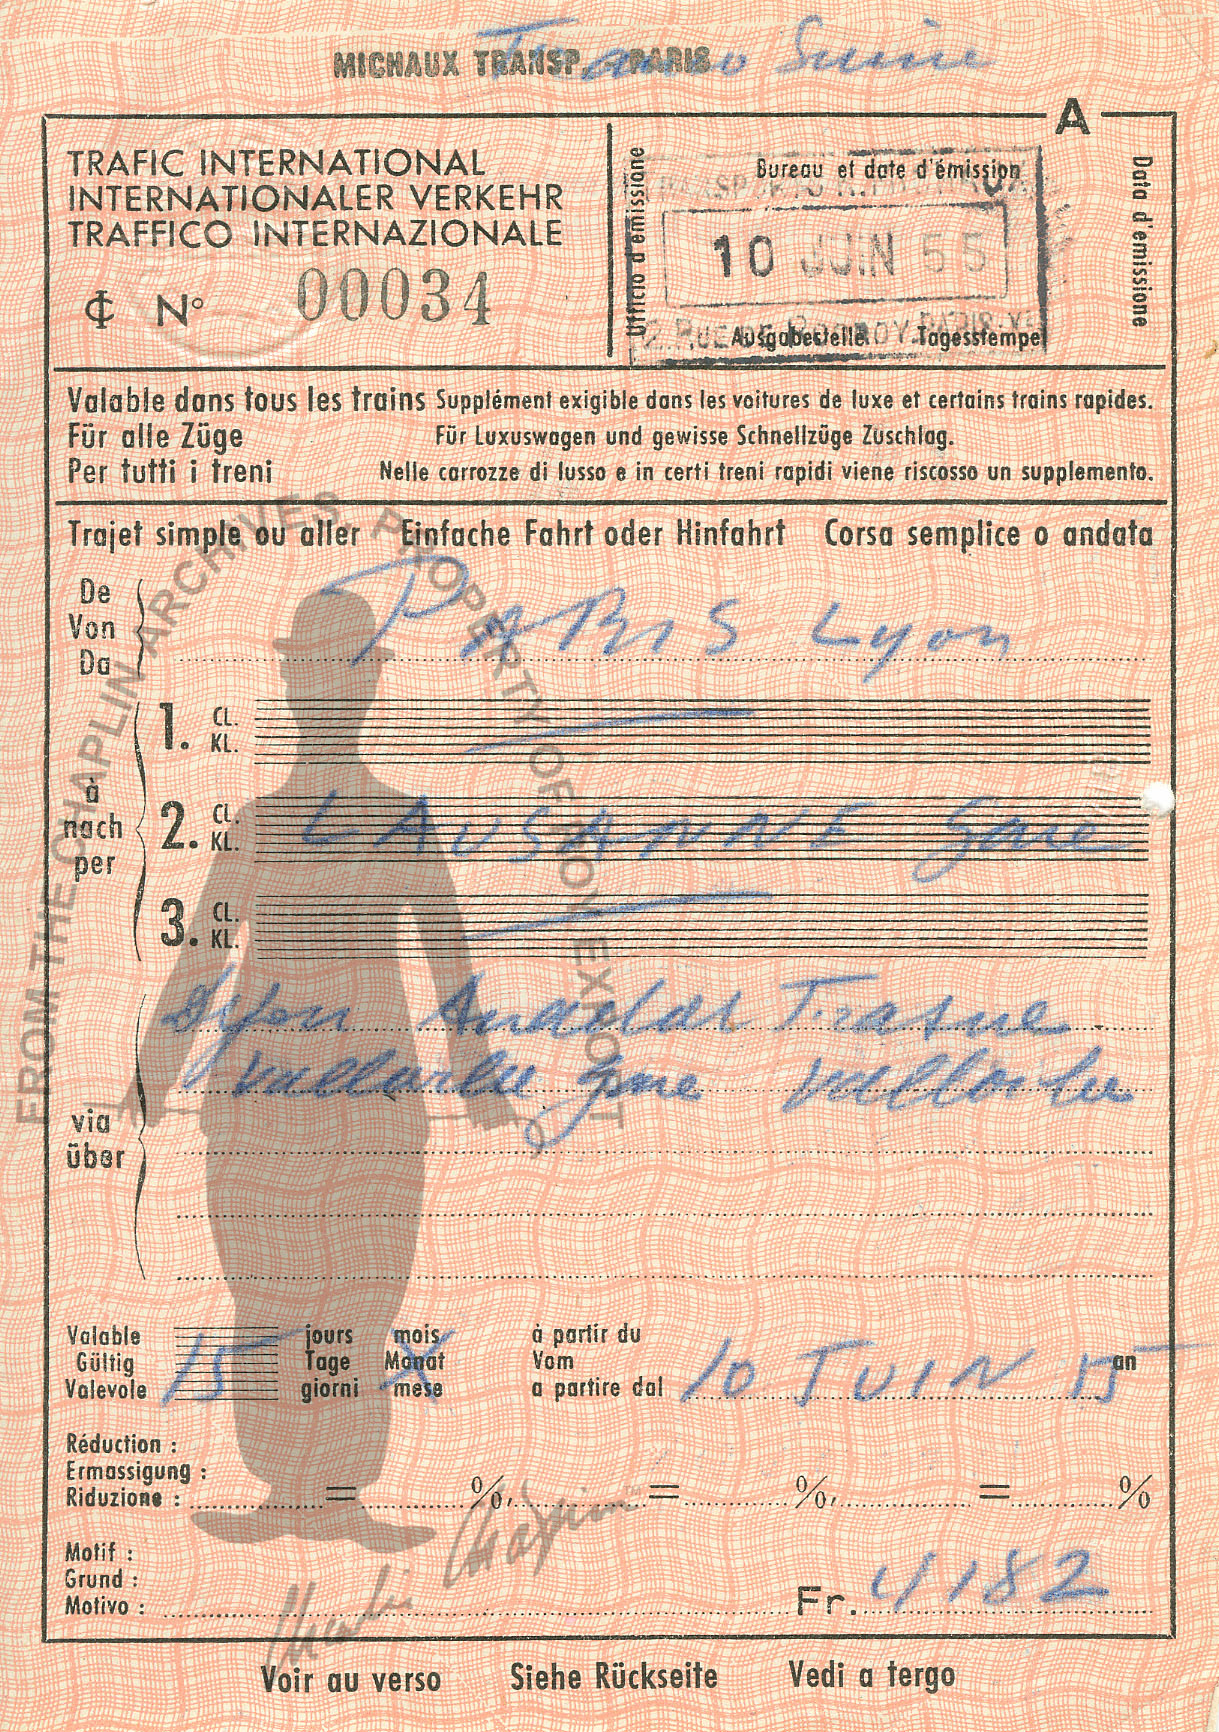 MICHAUX TRANSP. PARIS
A
TRAFIC INTERNATIONAL
INTERNATIONALER VERKEHR
TRAFFICO INTERNAZIONALE
₵ N° 00034
Bureau et date d'émission
Ufficio d'emissione
Data d'emissione
10 JUIN 55
Ausgabestelle Tagesstempel
Valable dans tous les trains Supplément exigible dans les voitures de luxe et certains trains rapides.
Für alle Züge Für Luxuswagen und gewisse Schnellzüge Zuschlag.
Per tutti i treni Nelle carrozze di lusso e in certi treni rapidi viene riscosso un supplemento.
Trajet simple ou aller Einfache Fahrt oder Hinfahrt Corsa semplice o andata
De
Von
Da
PARIS Lyon
1. CL. KL.
à
nach
per
2. CL. KL. LAUSANNE Gare
3. CL. KL.
Dijon Frasne
Vallorbe gare Vallorbe
via
über
Valable
Gültig
Valevole
15
jours
Tage
giorni
mois
Monat
mese
à partir du
Vom
a partire dal
10 JUIN 55
an
Réduction :
Ermassigung :
Riduzione : = %, = %, = %
Motif :
Grund :
Motivo :
Fr. 4182
Voir au verso Siehe Rückseite Vedi a tergo
FROM THE CHAPLIN ARCHIVES, PROPERTY OF ROY EXPORT
Charlie Chaplin